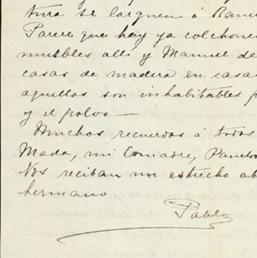 tura se larguen á Ranc
Parece que hay ya colchones
muebles allí y Manuel de
casas de madera en casa
aquellas son inhabitables p
y el polvo —
Muchos recuerdos á todos
Mada, mi Comadre, Pancho
Nos reciban un estrecho ab
hermano
Pablo